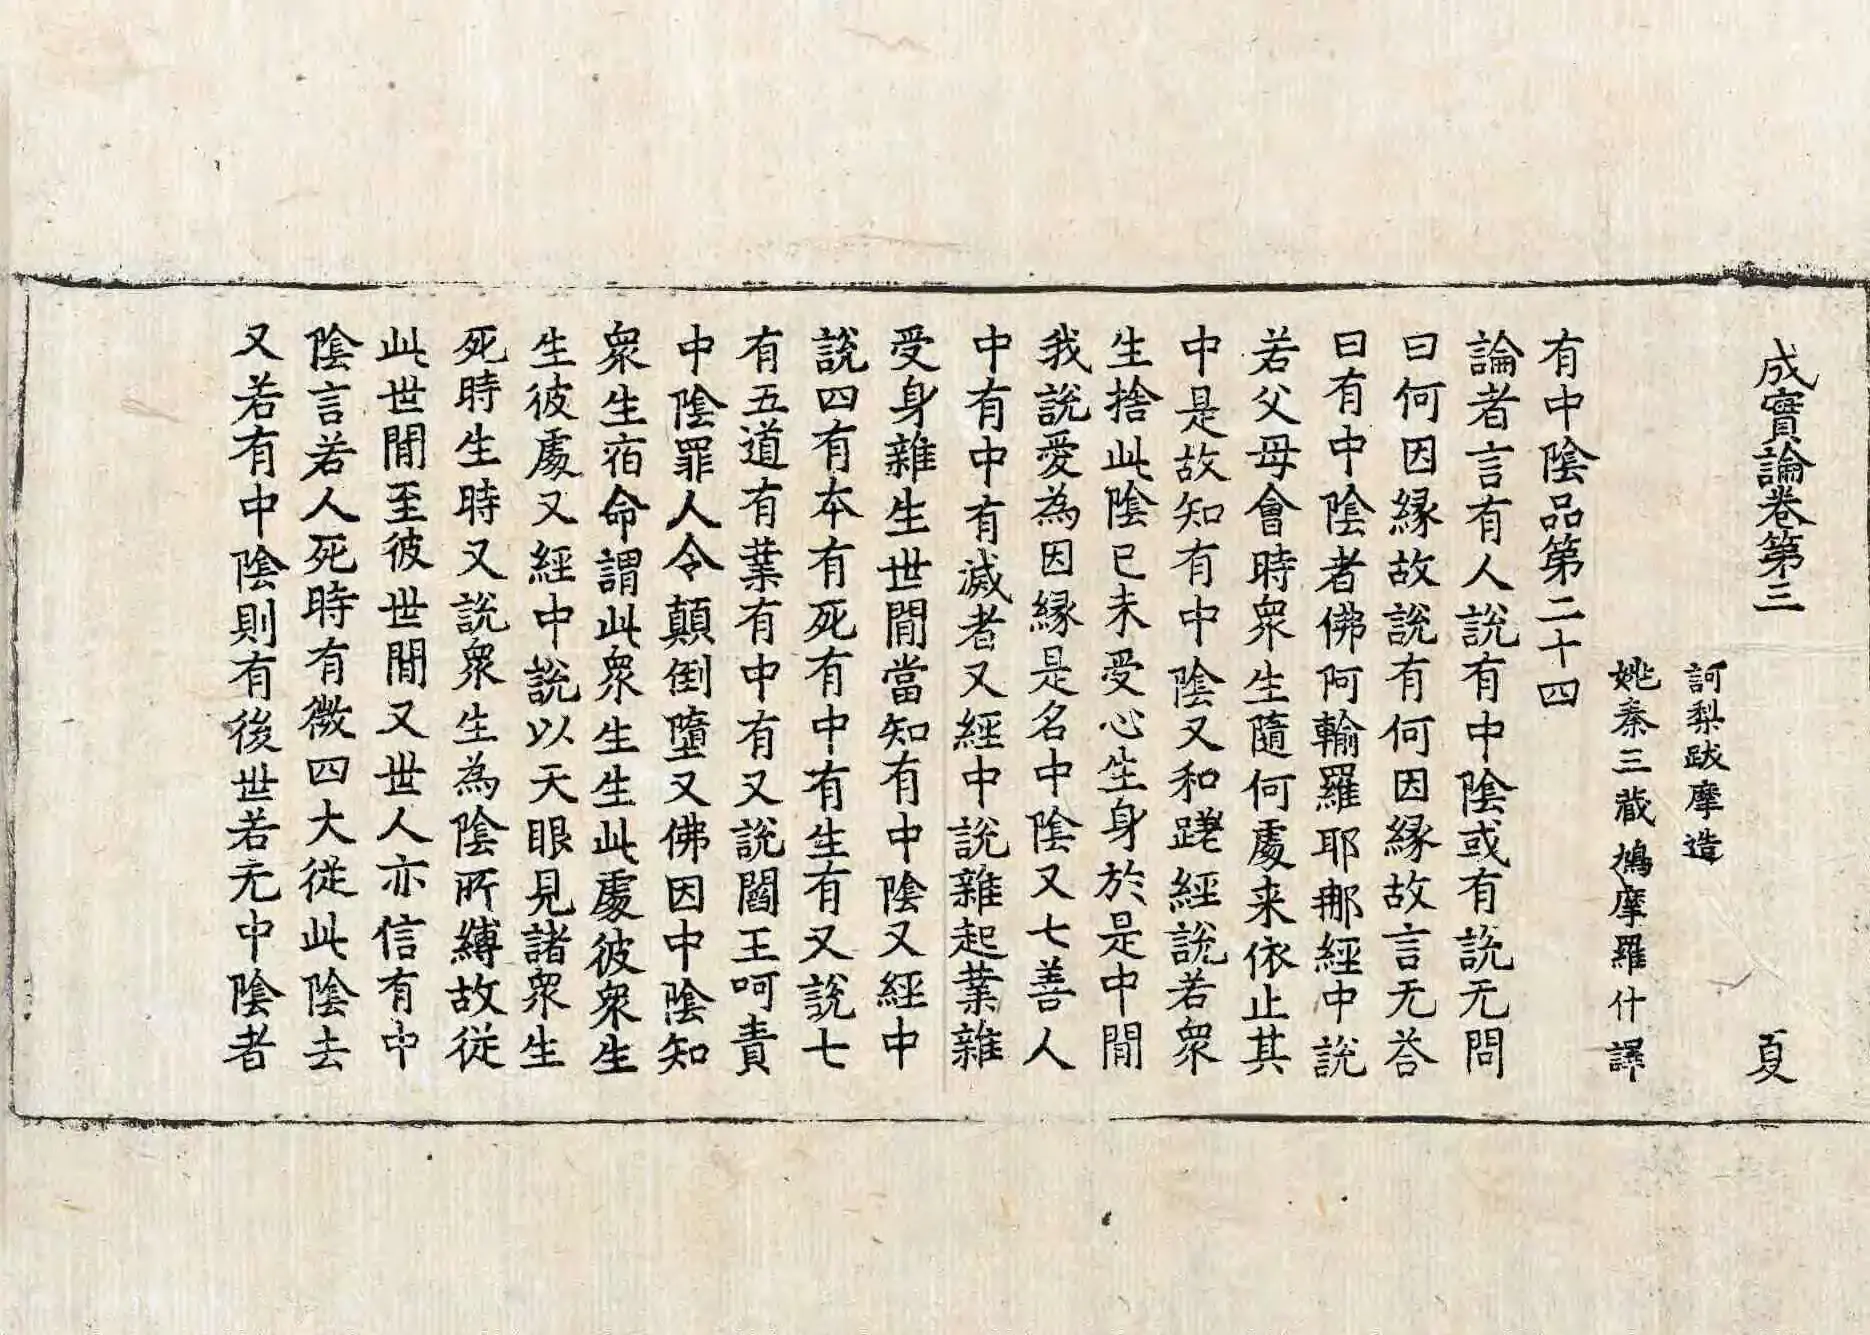 成實論卷第三 夏
訶梨跋摩造
姚秦三藏鳩摩羅什譯
有中陰品第二十四
論者言有人說有中陰或有說无問
曰何因縁故說有何因縁故言无荅
曰有中陰者佛阿輸羅耶那經中說
若父母會時衆生隨何處来依止其
中是故知有中陰又和蹉經說若衆
生捨此陰已未受心生身於是中閒
我說愛為因縁是名中陰又七善人
中有中有滅者又經中說雜起業雜
受身雜生世閒當知有中陰又經中
說四有本有死有中有生有又說七
有五道有業有中有又說閻王呵責
中陰罪人令顛倒墮又佛因中陰知
衆生宿命謂此衆生生此處彼衆生
生彼處又經中說以天眼見諸衆生
死時生時又說衆生為陰所縛故從
此世閒至彼世閒又世人亦信有中
陰言若人死時有微四大從此陰去
又若有中陰則有後世若无中陰者